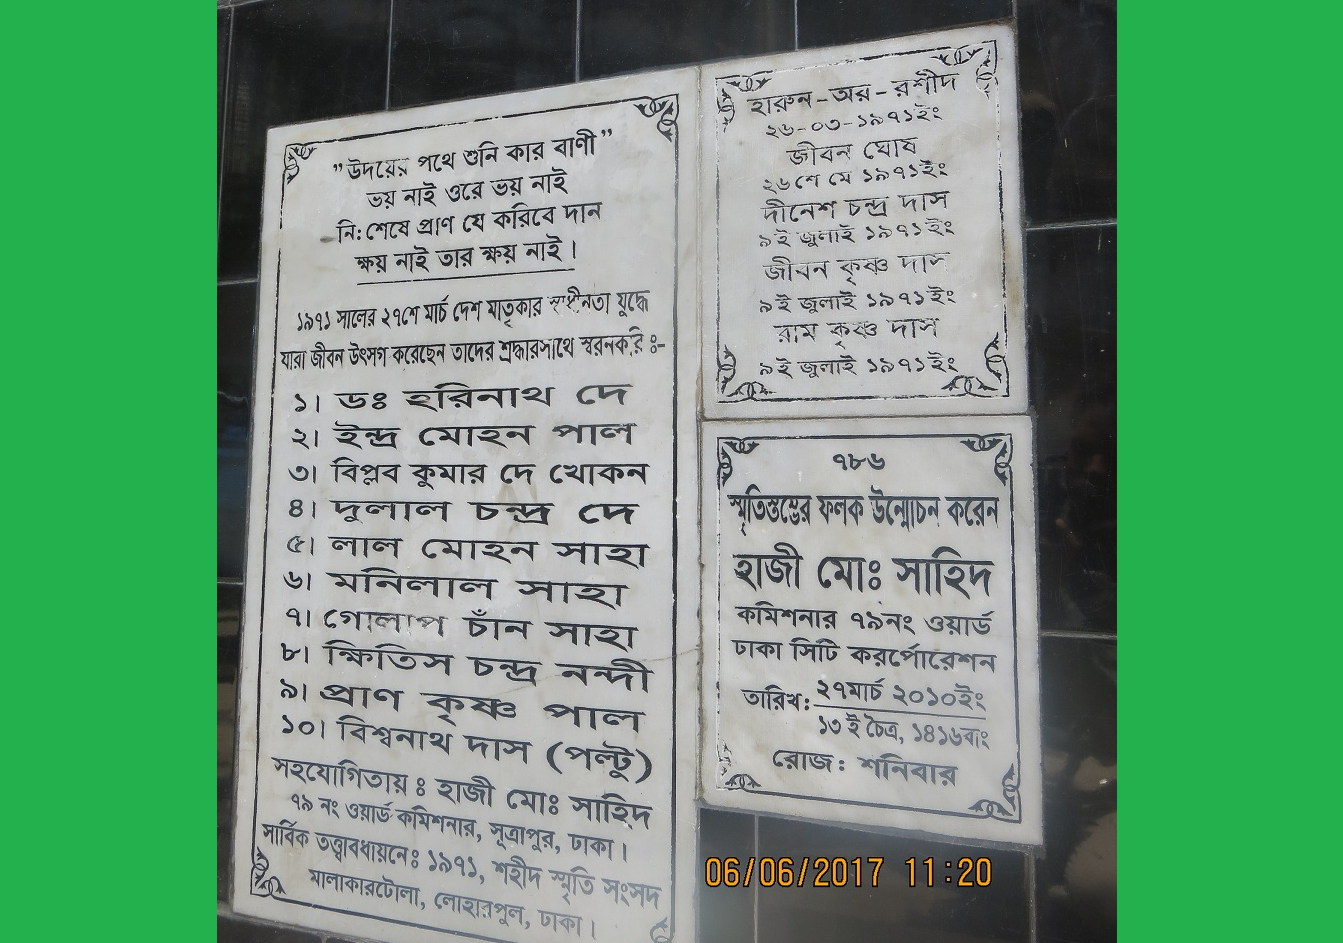 "উদয়ের পথে শুনি কার বাণী"
ভয় নাই ওরে ভয় নাই
নি:শেষে প্রাণ যে করিবে দান
ক্ষয় নাই তার ক্ষয় নাই।
১৯৭১ সালের ২৭শে মার্চ দেশ মাতৃকার স্বাধীনতা যুদ্ধে
যারা জীবন উৎসগ করেছেন তাদের শ্রদ্ধারসাথে স্বরনকরি ঃ-
১। ডঃ হরিনাথ দে
২। ইন্দ্র মোহন পাল
৩। বিপ্লব কুমার দে খোকন
৪। দুলাল চন্দ্র দে
৫। লাল মোহন সাহা
৬। মনিলাল সাহা
৭। গোলাপ চাঁন সাহা
৮। ক্ষিতিস চন্দ্র নন্দী
৯। প্রাণ কৃষ্ণ পাল
১০। বিশ্বনাথ দাস (পল্টু)
সহযোগিতায় ঃ হাজী মোঃ সাহিদ
৭৯ নং ওয়ার্ড কমিশনার, সূত্রাপুর, ঢাকা।
সার্বিক তত্ত্বাবধায়নেঃ ১৯৭১, শহীদ স্মৃতি সংসদ
মালাকারটোলা, লোহারপুল, ঢাকা।
হারুন-অর-রশীদ
২৬-০৩-১৯৭১ইং
জীবন ঘোষ
২৬শে মে ১৯৭১ইং
দীনেশ চন্দ্র দাস
৯ই জুলাই ১৯৭১ইং
জীবন কৃষ্ণ দাস
৯ই জুলাই ১৯৭১ইং
রাম কৃষ্ণ দাস
৯ই জুলাই ১৯৭১ইং
৭৮৬
স্মৃতিস্তম্ভের ফলক উন্মোচন করেন
হাজী মোঃ সাহিদ
কমিশনার ৭৯নং ওয়ার্ড
ঢাকা সিটি করর্পোরেশন
তারিখ: ২৭মার্চ ২০১০ইং
১৩ ই চৈত্র, ১৪১৬বাং
রোজ: শনিবার
06/06/2017 11:20